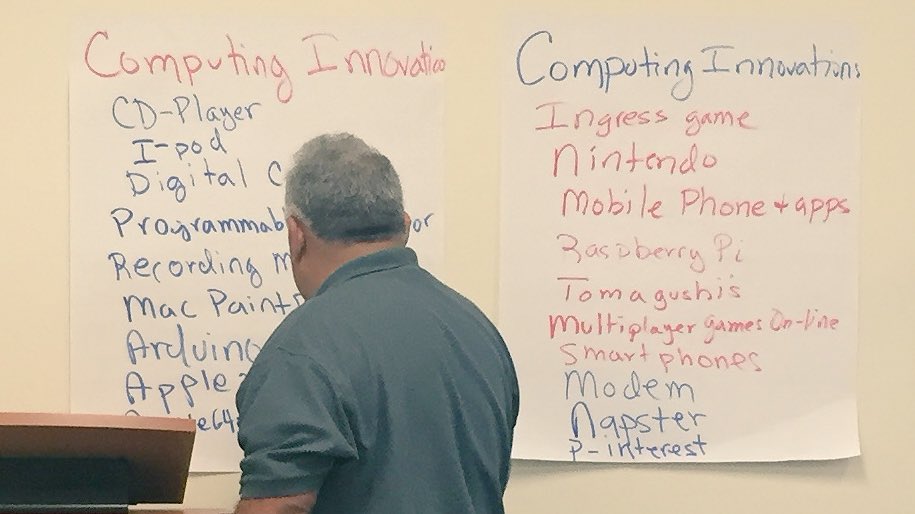 Computing Innovatio
CD-Player
I-pod
Digital C
Programmab or
Recording M
Mac Paint
Arduino
Apple
e64
Computing Innovations
Ingress game
Nintendo
Mobile Phone + apps
Raspberry Pi
Tomagushi's
Multiplayer games On-line
Smart phones
Modem
Napster
P-interest